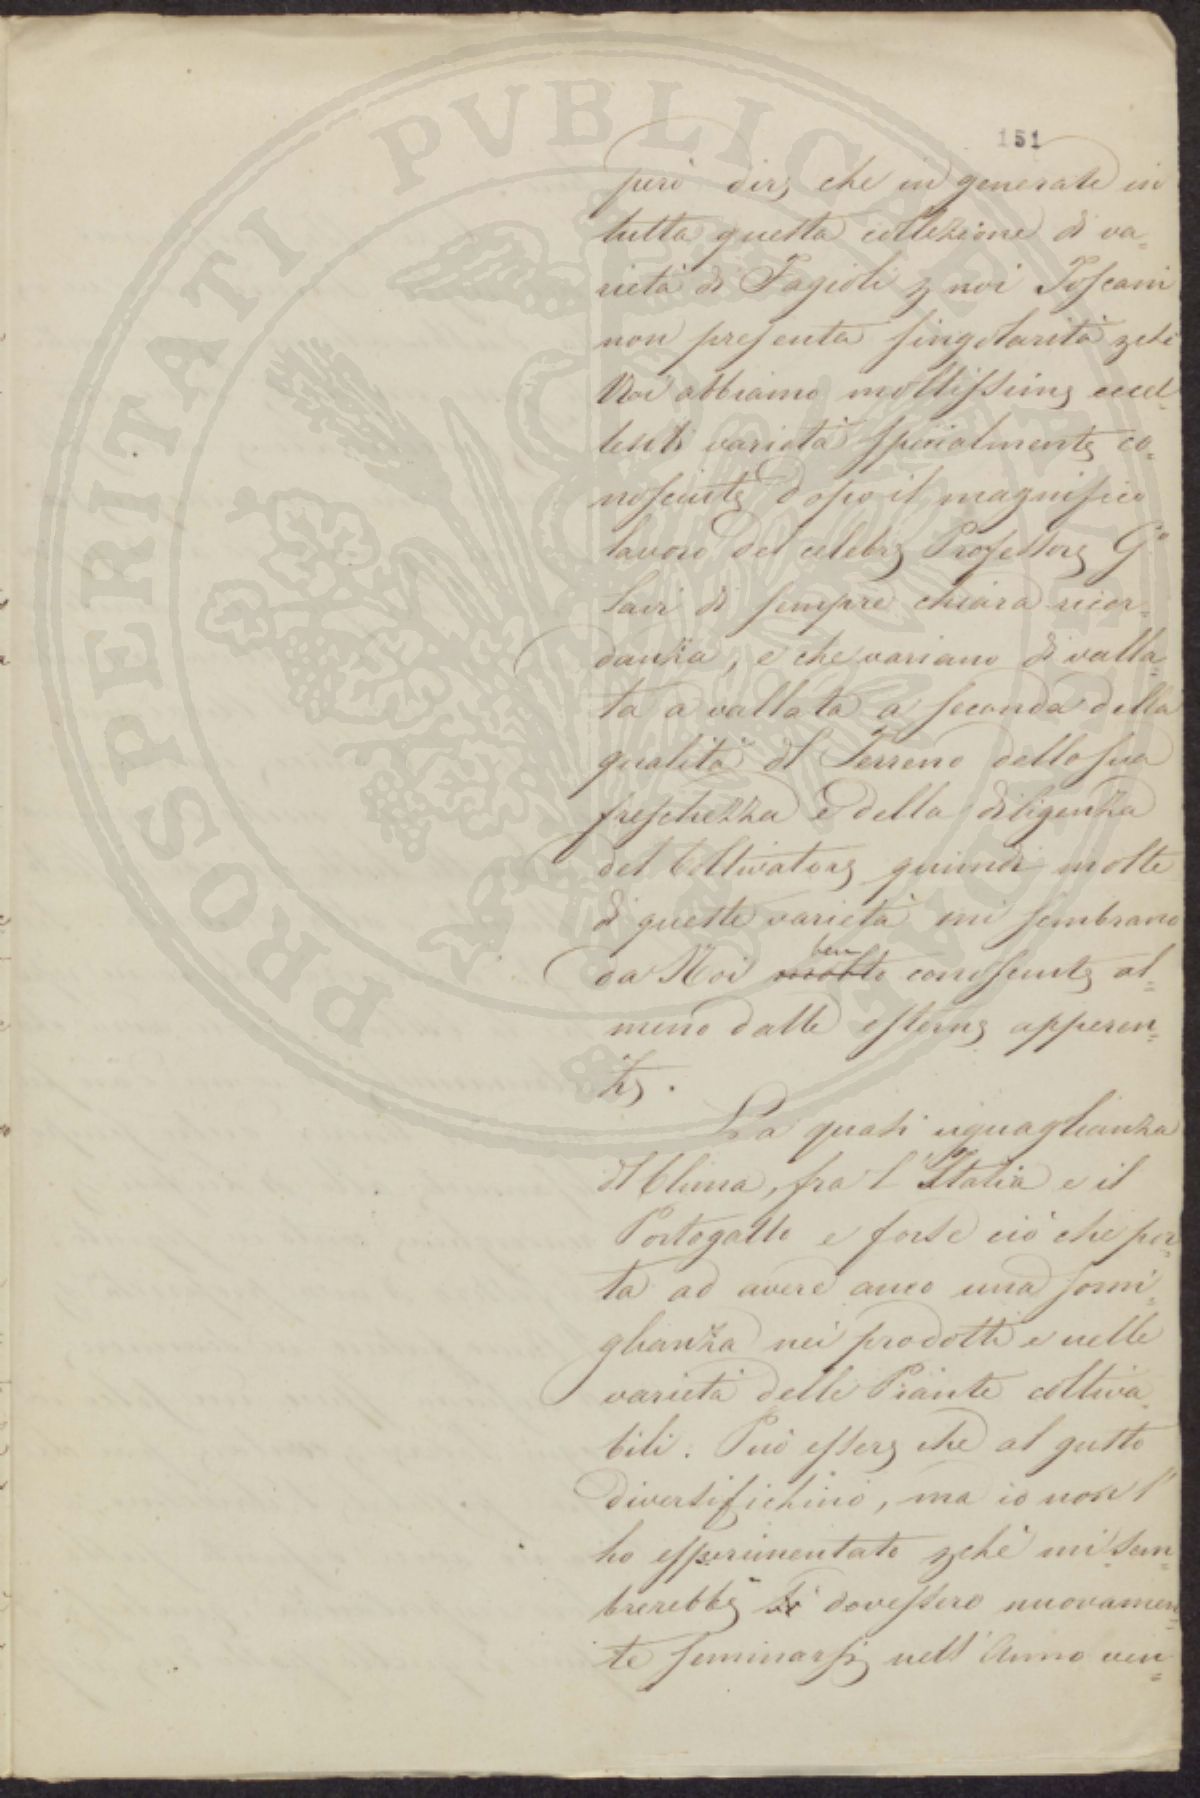 151
però dire, che in generale in
tutta questa collezione di va=
rietà di Fagioli p noi Toscani
non presenta singolarità pchè
Noi abbiamo moltissime eccel=
lenti varietà specialmente co=
nosciute dopo il magnifico
lavoro del celebre Professore G.º
Savi di sempre chiara ricor=
danza, e che variano di valla=
ta a vallata a seconda della
qualità del Terreno della sua
freschezza e della diligenza
del Coltivatore quindi molte
di queste varietà mi sembrano
ben
da Noi molto conosciute al=
meno dalle esterne apparen=
ze.
La quasi uguaglianza
del Clima, fra l'Italia e il
Portogallo e forse ciò che por=
ta ad avere anco una somi=
glianza nei prodotti e nelle
varietà delle Piante coltiva=
bili. Può essere che al gusto
diversifichino, ma io non l'
ho esperimentato pchè mi sem=
brerebbe si dovessero nuovamen=
te seminarsi nell'Anno ven=
PROSPERITATI PVBLICAE